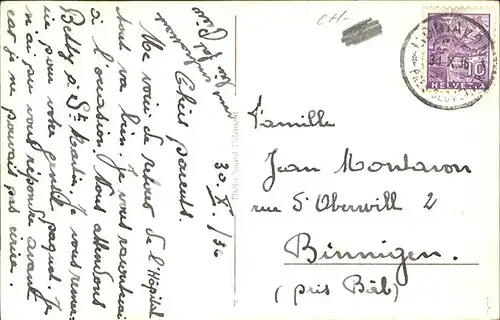 30. X. /36
Chers parents.
Me voici de retour de l'Hôpital
tout va bien. Je vous raconterai
à l'occasion. Nous attendons
Betty à St. Martin. Je vous remer-
cie pour votre gentil paquet. Je
n'ai pu vous répondre avant
car je ne pouvais pas écrire.
CH/-
31. X. 36
HELVETIA
10
Famille
Jean Montavon
rue d'Oberwill 2
Binnigen.
(près Bâle)